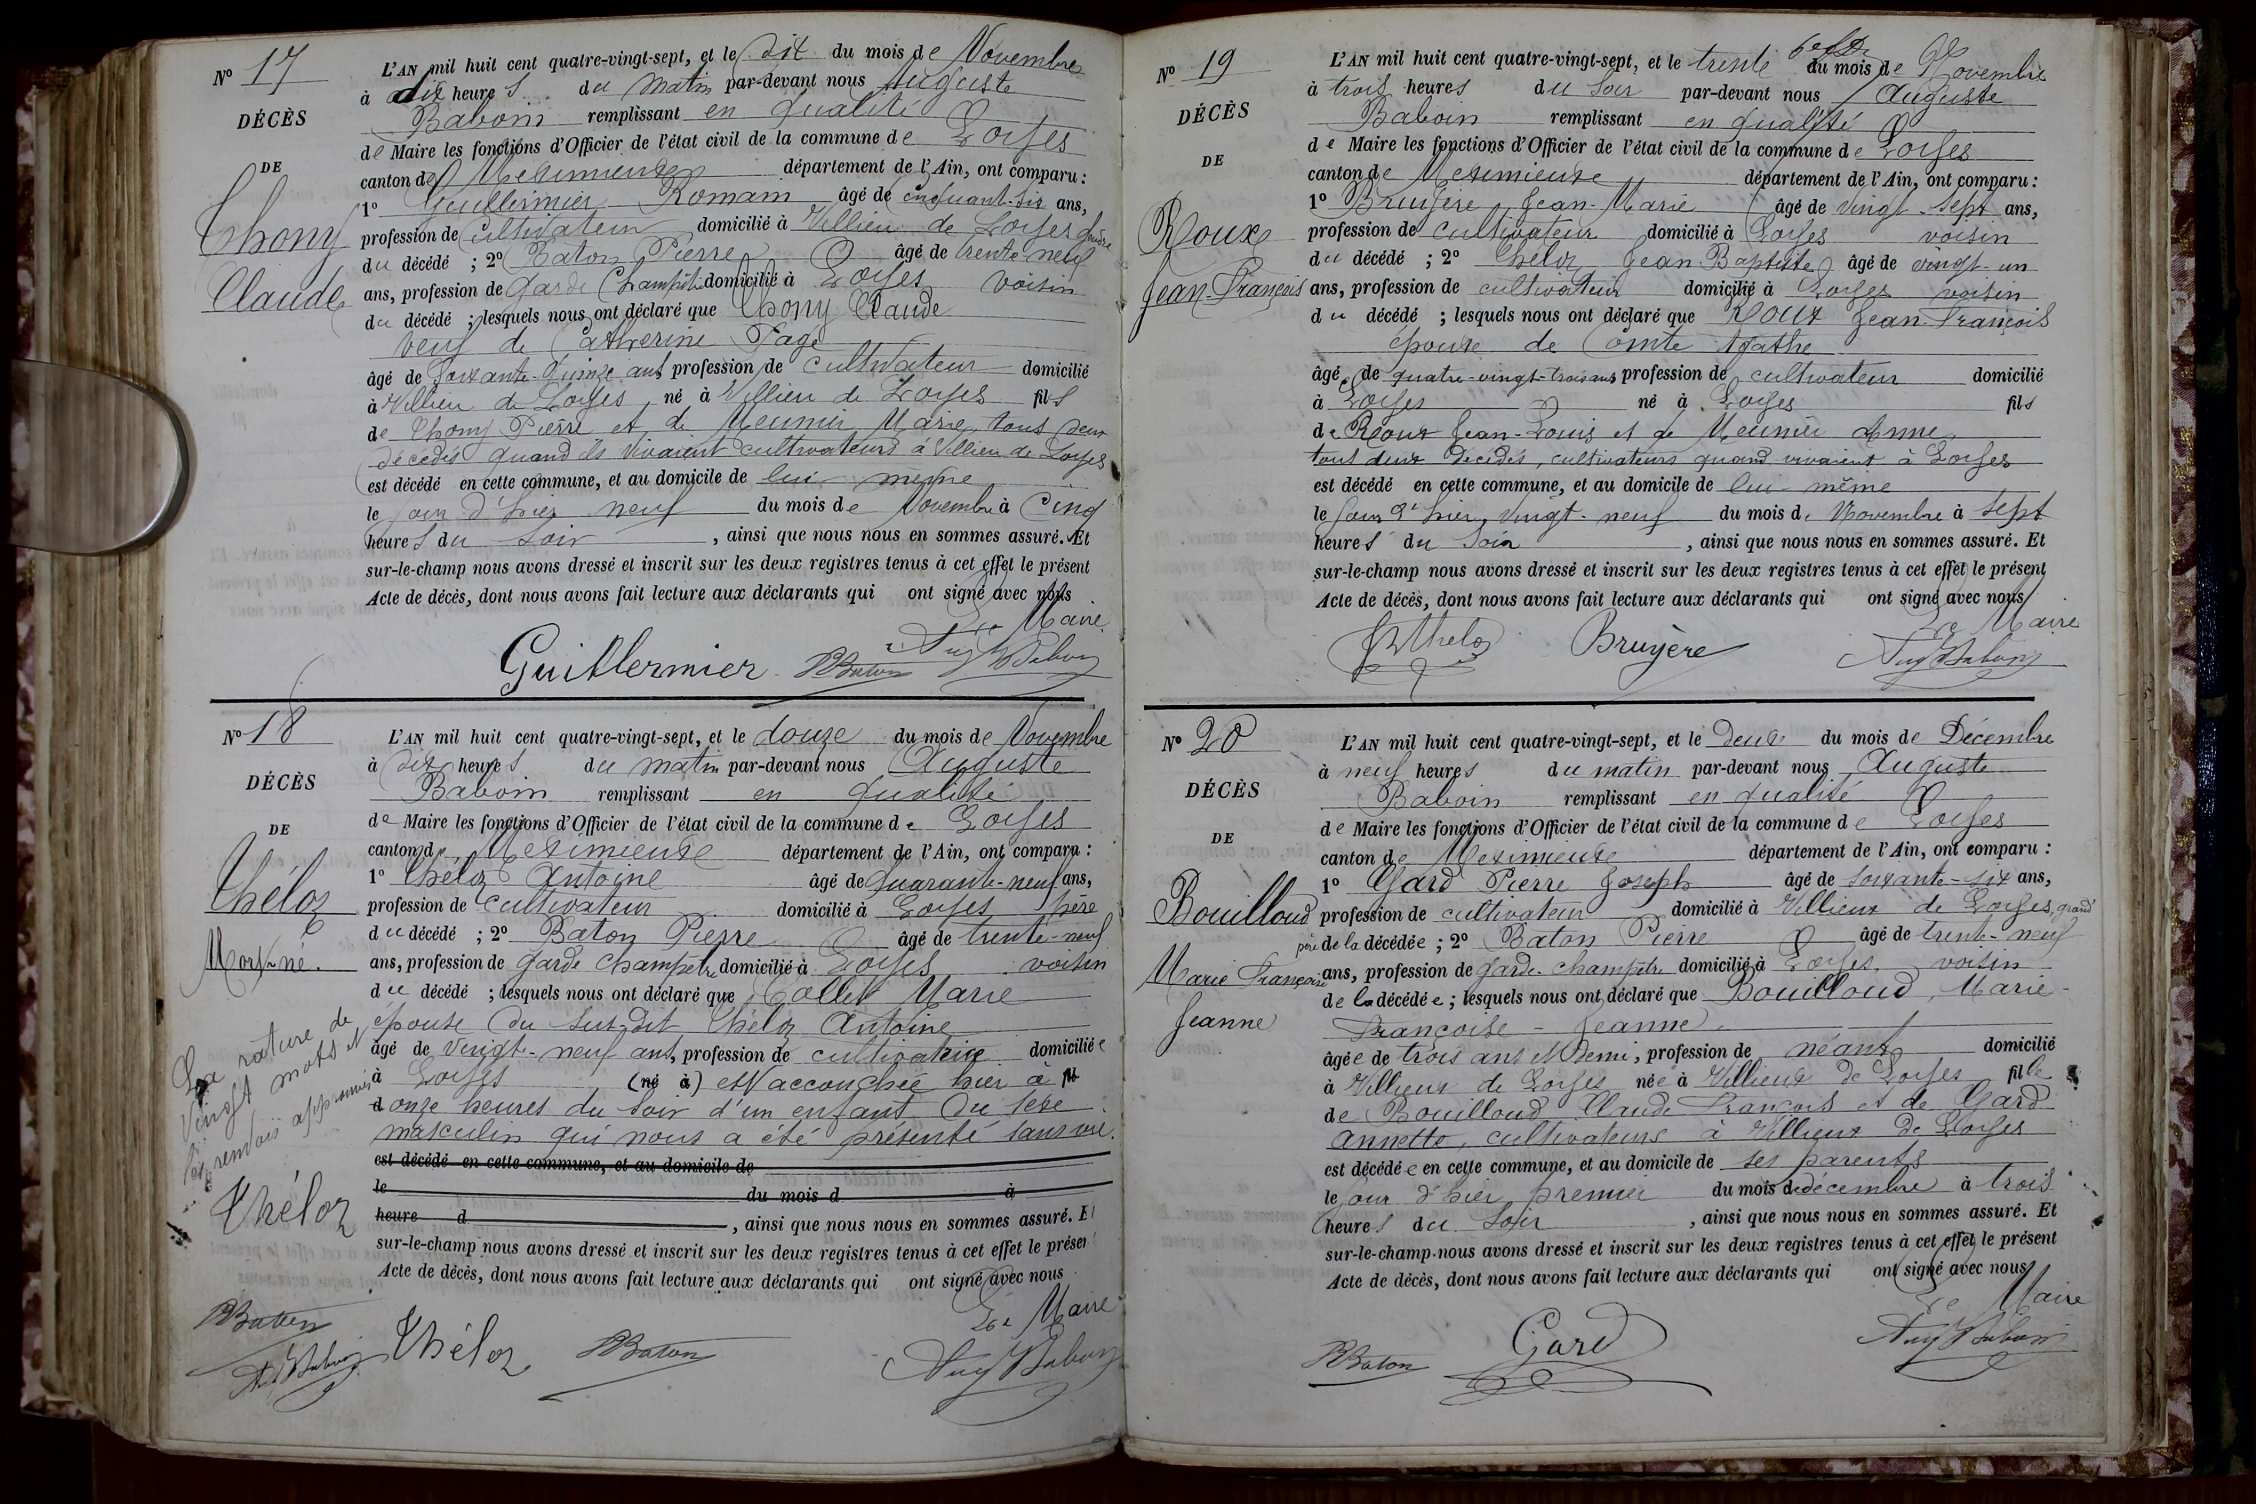 N° 17
DÉCÈS
DE
Thony
Claude
L'AN mil huit cent quatre-vingt-sept, et le dix du mois de Novembre
à dix heures du matin par-devant nous Auguste
Baboin remplissant en qualité
de Maire les fonctions d'Officier de l'état civil de la commune de Loyes
canton de Meximieux département de l'Ain, ont comparu :
1° Guillermier Romain âgé de cinquant-six ans,
profession de cultivateur domicilié à Villieu de Loyes
du décédé ; 2° Baton Pierre âgé de trente-neuf
ans, profession de garde champêtre domicilié à Loyes voisin
du décédé ; lesquels nous ont déclaré que Thony Claude
veuf de Catherine Page
âgé de soixante-quinze ans profession de cultivateur domicilié
à Villieu de Loyes né à Villieu de Loyes fils
de Thony Pierre et de Meunier Marie, tous deux
décédés quand ils vivaient cultivateurs à Villieu de Loyes
est décédé en cette commune, et au domicile de lui même
le jour d'hier neuf du mois de Novembre à cinq
heures du soir, ainsi que nous nous en sommes assuré. Et
sur-le-champ nous avons dressé et inscrit sur les deux registres tenus à cet effet le présent
Acte de décès, dont nous avons fait lecture aux déclarants qui ont signé avec nous
Le Maire
Guillermier PBaton Aug Baboin
N° 18
DÉCÈS
DE
Théloz
Mort-né.
La rature de
vingt mots et
les renvois approuvés
Théloz
L'AN mil huit cent quatre-vingt-sept, et le douze du mois de Novembre
à dix heures du matin par-devant nous Auguste
Baboin remplissant en qualité
de Maire les fonctions d'Officier de l'état civil de la commune de Loyes
canton de Meximieux département de l'Ain, ont comparu :
1° Théloz Antoine âgé de quarante-neuf ans,
profession de cultivateur domicilié à Loyes père
du décédé ; 2° Baton Pierre âgé de trente-neuf
ans, profession de garde champêtre domicilié à Loyes voisin
du décédé ; lesquels nous ont déclaré que Collet Marie
épouse du sus-dit Théloz Antoine
âgé de vingt-neuf ans, profession de cultivatrice domiciliée
à Loyes (né à) est accouchée hier à fil
d onze heures du soir d'un enfant du sexe
masculin qui nous a été présenté sans vie.
est décédé en cette commune, et au domicile de
le du mois d à
heure d , ainsi que nous nous en sommes assuré. Et
sur-le-champ nous avons dressé et inscrit sur les deux registres tenus à cet effet le présent
Acte de décès, dont nous avons fait lecture aux déclarants qui ont signé avec nous
Le Maire
PBaton Aug Baboin Théloz PBaton Aug Baboin
N° 19
DÉCÈS
DE
Roux
Jean-François
L'AN mil huit cent quatre-vingt-sept, et le trente du mois de Novembre
à trois heures du soir par-devant nous Auguste
Baboin remplissant en qualité
de Maire les fonctions d'Officier de l'état civil de la commune de Loyes
canton de Meximieux département de l'Ain, ont comparu :
1° Bruyère Jean-Marie âgé de vingt-sept ans,
profession de cultivateur domicilié à Loyes voisin
du décédé ; 2° Théloz Jean Baptiste âgé de vingt-un
ans, profession de cultivateur domicilié à Loyes voisin
du décédé ; lesquels nous ont déclaré que Roux Jean-François
époux de Comte Agathe
âgé de quatre-vingt-trois ans profession de cultivateur domicilié
à Loyes né à Loyes fils
de Roux Jean-Louis et de Meunier Anne
tous deux décédés, cultivateurs quand vivaient à Loyes
est décédé en cette commune, et au domicile de lui même
le jour d'hier vingt-neuf du mois de Novembre à sept
heures du soir, ainsi que nous nous en sommes assuré. Et
sur-le-champ nous avons dressé et inscrit sur les deux registres tenus à cet effet le présent
Acte de décès, dont nous avons fait lecture aux déclarants qui ont signé avec nous
Le Maire
Théloz Bruyère Aug Baboin
N° 20
DÉCÈS
DE
Bouilloud
Marie Françoise
Jeanne
L'AN mil huit cent quatre-vingt-sept, et le deux du mois de Décembre
à neuf heures du matin par-devant nous Auguste
Baboin remplissant en qualité
de Maire les fonctions d'Officier de l'état civil de la commune de Loyes
canton de Meximieux département de l'Ain, ont comparu :
1° Gard Pierre Joseph âgé de soixante-six ans,
profession de cultivateur domicilié à Villieux de Loyes, grand
père de la décédée ; 2° Baton Pierre âgé de trente-neuf
ans, profession de garde-champêtre domicilié à Loyes, voisin
de la décédée ; lesquels nous ont déclaré que Bouilloud, Marie-
Françoise-Jeanne
âgée de trois ans et demi, profession de néant domicilié
à Villieux de Loyes née à Villieux de Loyes fille
de Bouilloud Claude François et de Gard
Annette, cultivateurs à Villieux de Loyes
est décédée en cette commune, et au domicile de ses parents
le jour d'hier premier du mois de décembre à trois
heures du soir, ainsi que nous nous en sommes assuré. Et
sur-le-champ nous avons dressé et inscrit sur les deux registres tenus à cet effet le présent
Acte de décès, dont nous avons fait lecture aux déclarants qui ont signé avec nous
Le Maire
PBaton Gard Aug Baboin